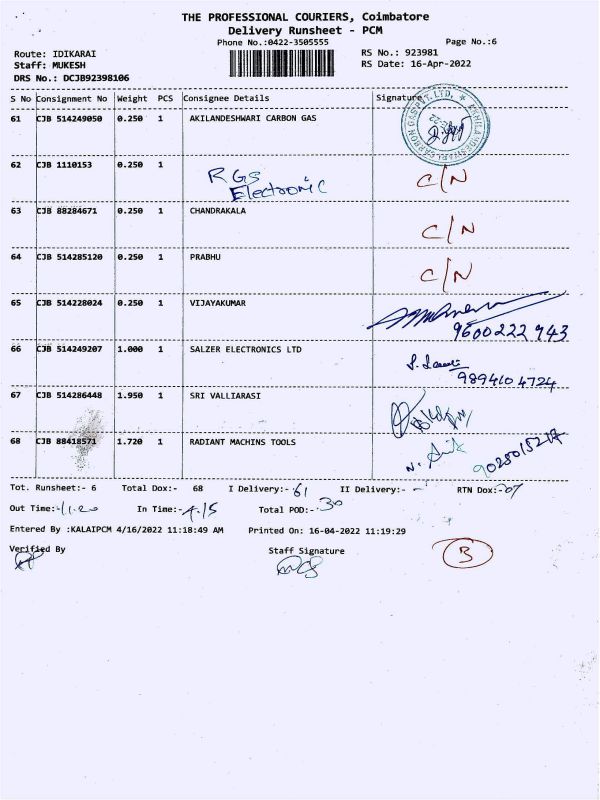 THE PROFESSIONAL COURIERS, Coimbatore
Delivery Runsheet - PCM
Phone No.:0422-3505555 Page No.:6
Route: IDIKARAI RS No.: 923981
Staff: MUKESH RS Date: 16-Apr-2022
DRS No.: DCJB92398106
S No Consignment No Weight PCS Consignee Details Signature
61 CJB 514249050 0.250 1 AKILANDESHWARI CARBON GAS
62 CJB 1110153 0.250 1 RGS Electronic C/N
63 CJB 88284671 0.250 1 CHANDRAKALA C/N
64 CJB 514285120 0.250 1 PRABHU C/N
65 CJB 514228024 0.250 1 VIJAYAKUMAR
9600222943
66 CJB 514249207 1.000 1 SALZER ELECTRONICS LTD
9894104724
67 CJB 514286448 1.950 1 SRI VALLIARASI
68 CJB 88418571 1.720 1 RADIANT MACHINS TOOLS
Tot. Runsheet:- 6 Total Dox:- 68 I Delivery:- 61 II Delivery:- - RTN Dox:- 07
Out Time:- In Time:- 4.15 Total POD:- 30
Entered By :KALAIPCM 4/16/2022 11:18:49 AM Printed On: 16-04-2022 11:19:29
Verified By Staff Signature
B